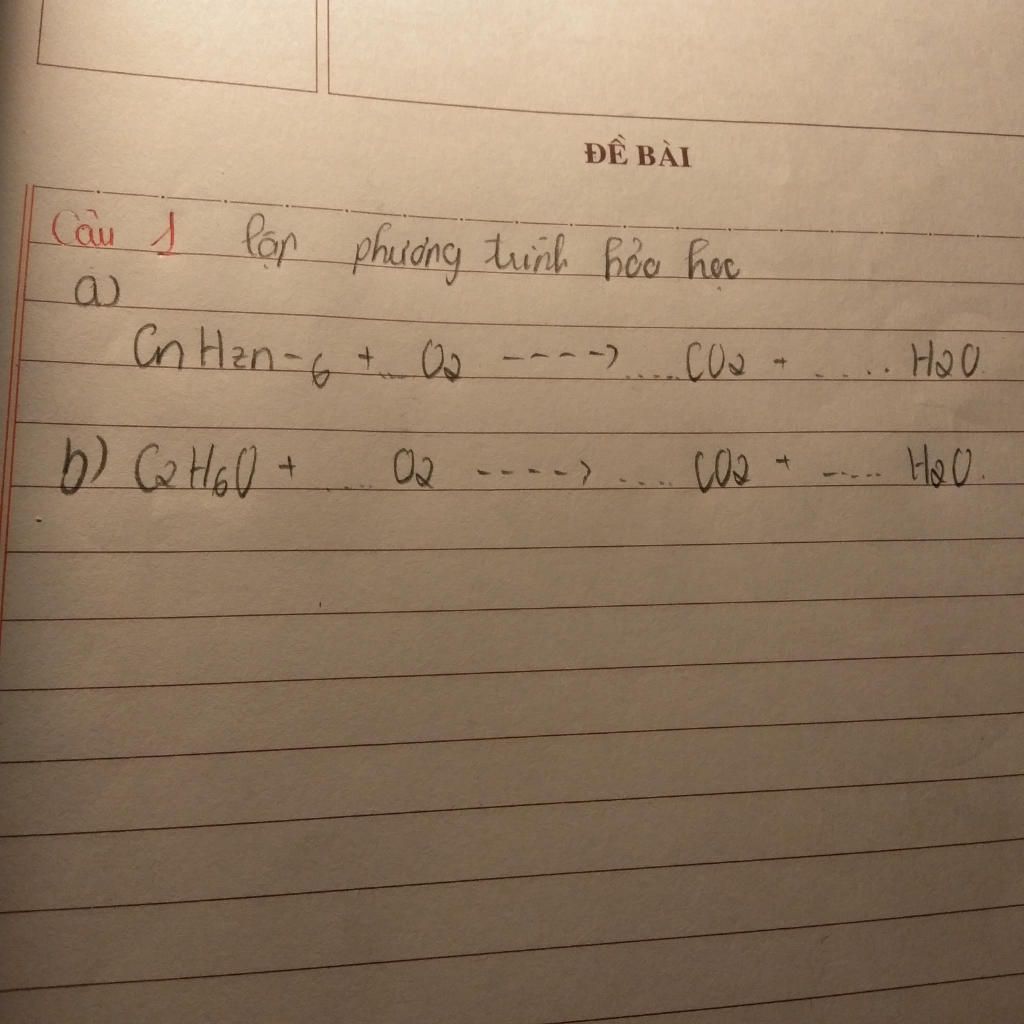 ĐỀ BÀI
Câu 1 lập phương trình hóa học
a)
CnH2n-6 + ... O2 ----> ..... CO2 + ..... H2O
b) C2H6O + .... O2 ----> .... CO2 + ..... H2O.